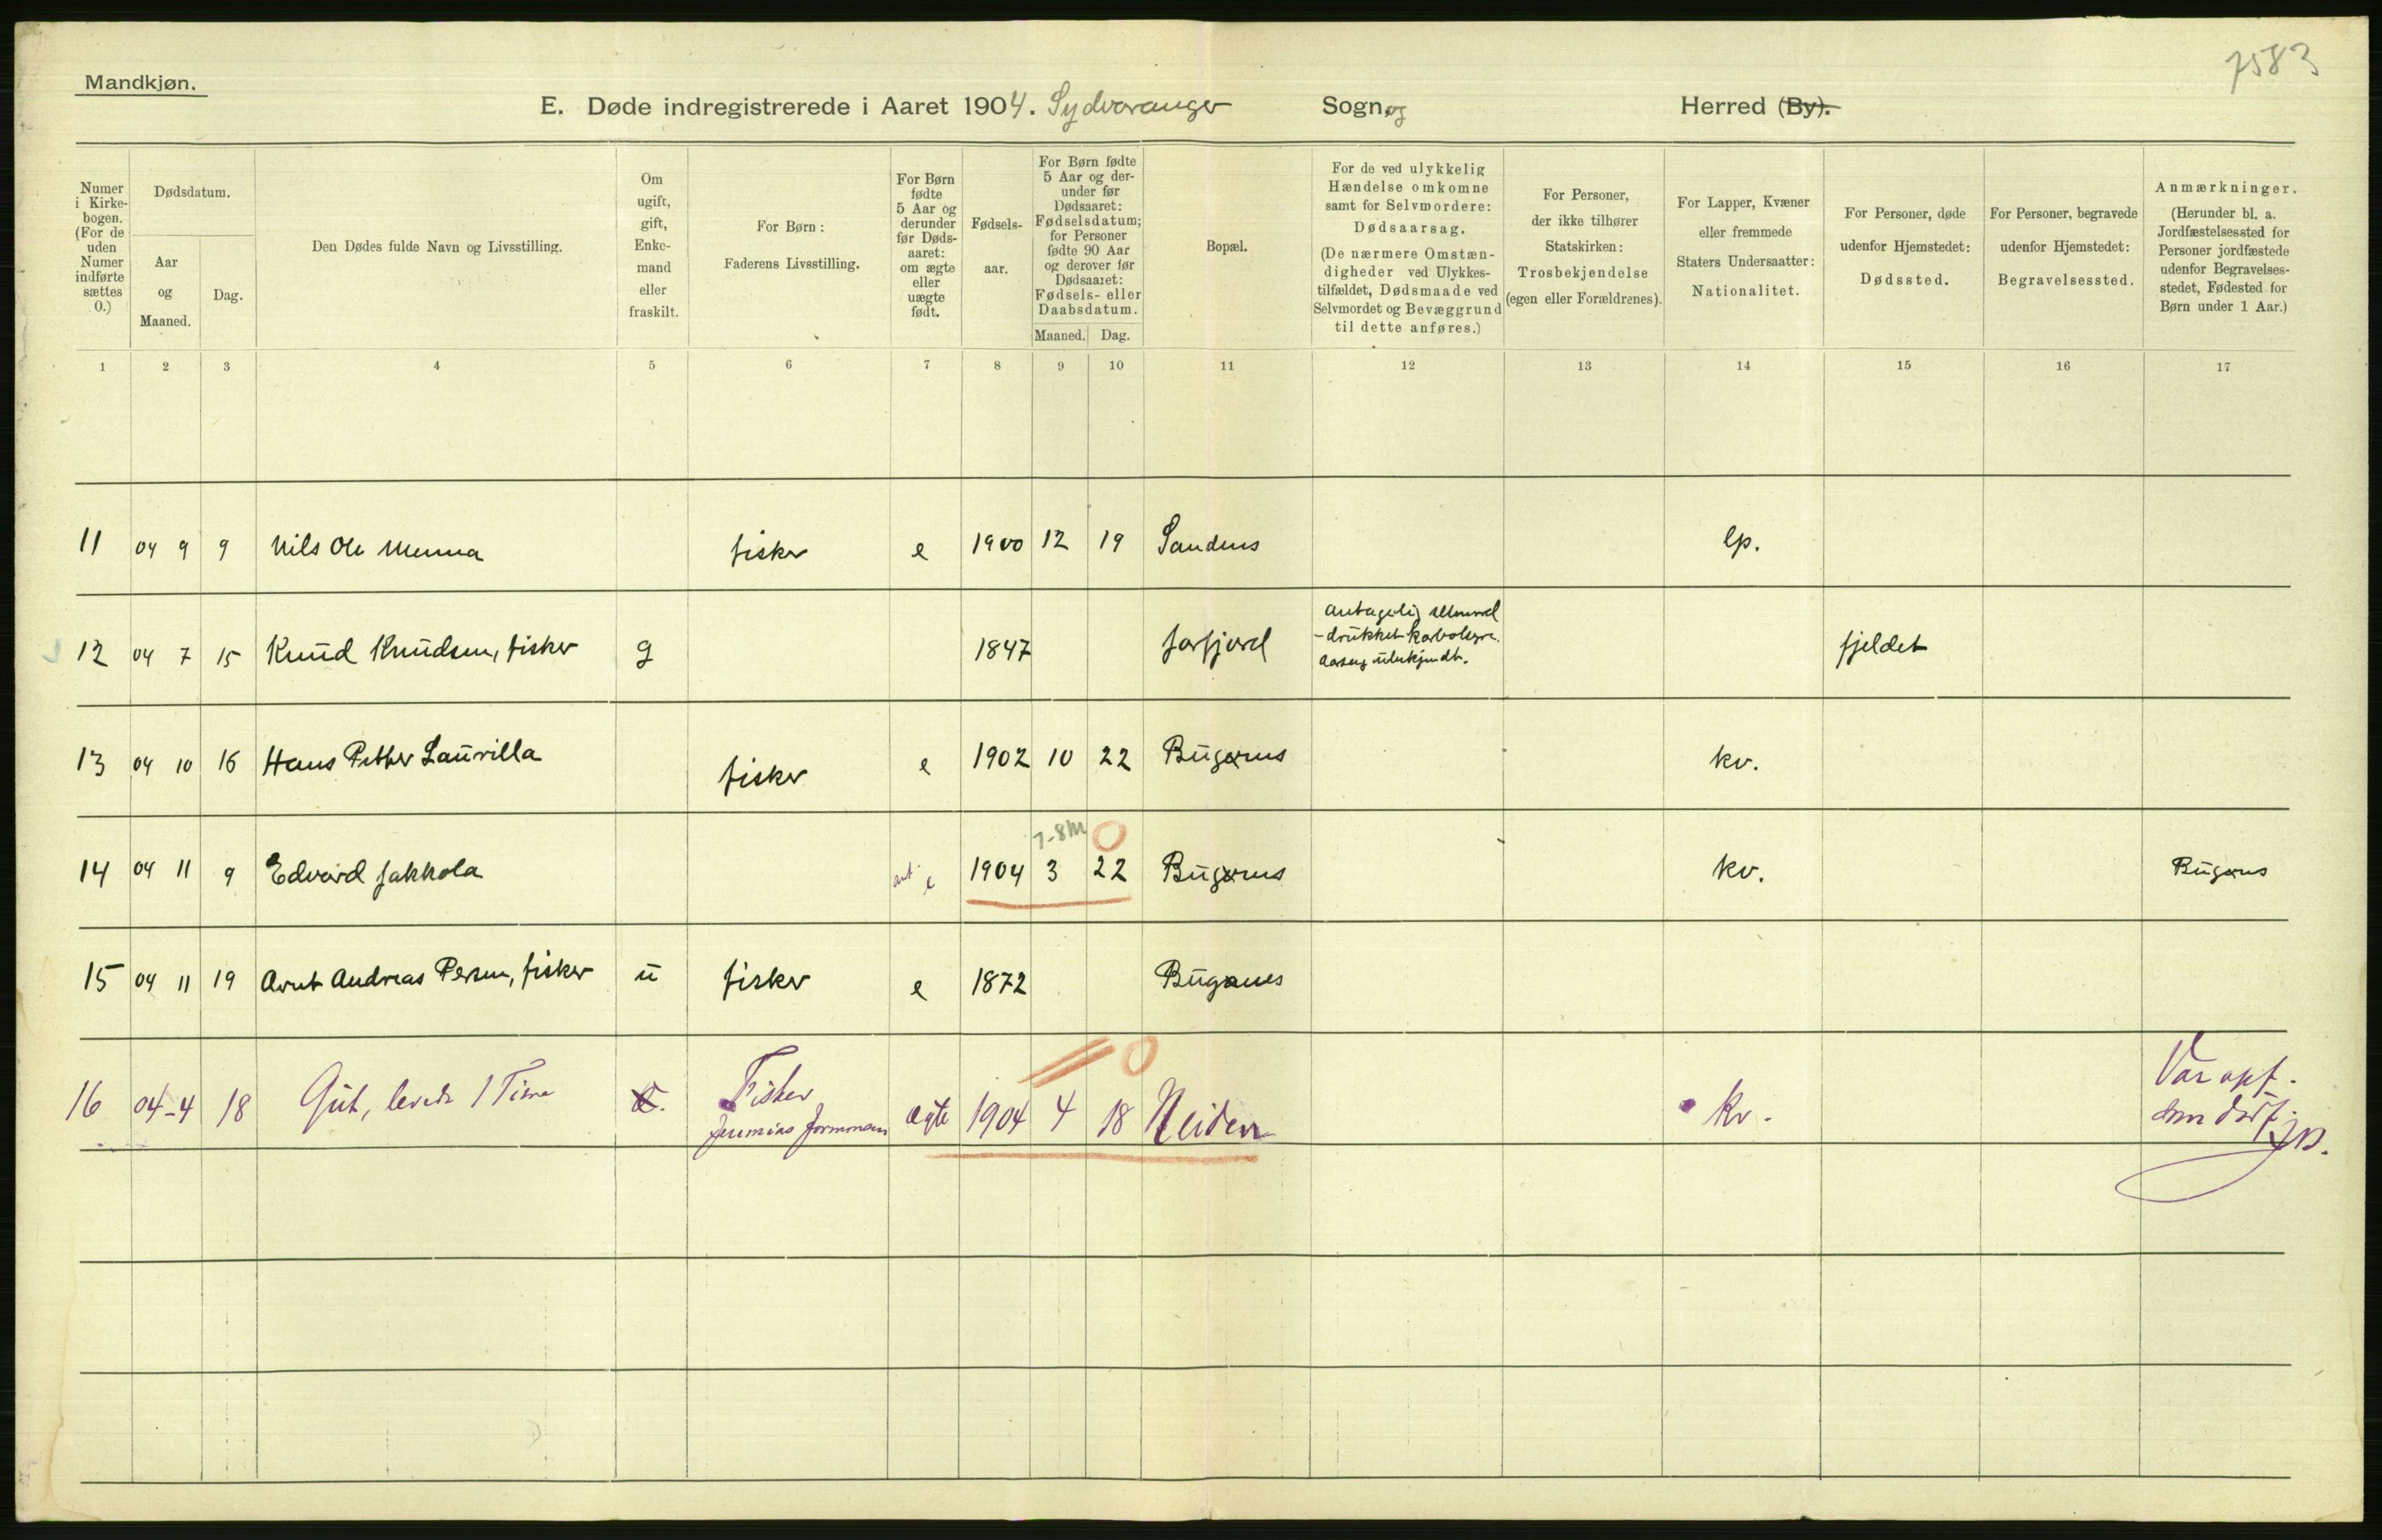 7583
Mandkjøn.
E. Døde indregistrerede i Aaret 1904. Sydvaranger Sogn, og Herred (By).
Numer i Kirke-bogen. (For de uden Numer indførte sættes 0.)
Dødsdatum.
Aar og Maaned.
Dag.
Den Dødes fulde Navn og Livsstilling.
Om ugift, gift, Enke-mand eller fraskilt.
For Børn: Faderens Livsstilling.
For Børn fødte 5 Aar og derunder før Døds-aaret: om ægte eller uægte født.
Fødsels-aar.
For Børn fødte 5 Aar og der-under før Dødsaaret: Fødselsdatum; for Personer fødte 90 Aar og derover før Dødsaaret: Fødsels- eller Daabsdatum.
Maaned. Dag.
Bopæl.
For de ved ulykkelig Hændelse omkomne samt for Selvmordere: Dødsaarsag. (De nærmere Omstæn-digheder ved Ulykkes-tilfældet, Dødsmaade ved Selvmordet og Bevæggrund til dette anføres.)
For Personer, der ikke tilhører Statskirken: Trosbekjendelse (egen eller Forældrenes).
For Lapper, Kvæner eller fremmede Staters Undersaatter: Nationalitet.
For Personer, døde udenfor Hjemstedet: Dødssted.
For Personer, begravede udenfor Hjemstedet: Begravelsessted.
Anmærkninger. (Herunder bl. a. Jordfæstelsessted for Personer jordfæstede udenfor Begravelses-stedet, Fødested for Børn under 1 Aar.)
1 2 3 4 5 6 7 8 9 10 11 12 13 14 15 16 17
11 04 9 9 Nils Ole Menna fisker e 1900 12 19 Sandnes lp.
12 04 7 15 Knud Knudsen, fisker g 1847 Jarfjord fjeldet
antagelig
-drukket karbolsyre.
aarsag ubekjendt.
13 04 10 16 Hans Petter Laurilla fisker e 1902 10 22 Bugønes kv.
7-8 M 0
14 04 11 9 Edvard Jakkola ant. e 1904 3 22 Bugønes kv. Bugønes
15 04 11 19 Arnt Andreas Persen, fisker u fisker e 1872 Bugønes
0
16 04-4 18 Gut, levede 1 Time Fisker ægte 1904 4 18 Neiden kv.
Jeremias
Var opf.
som dødf.